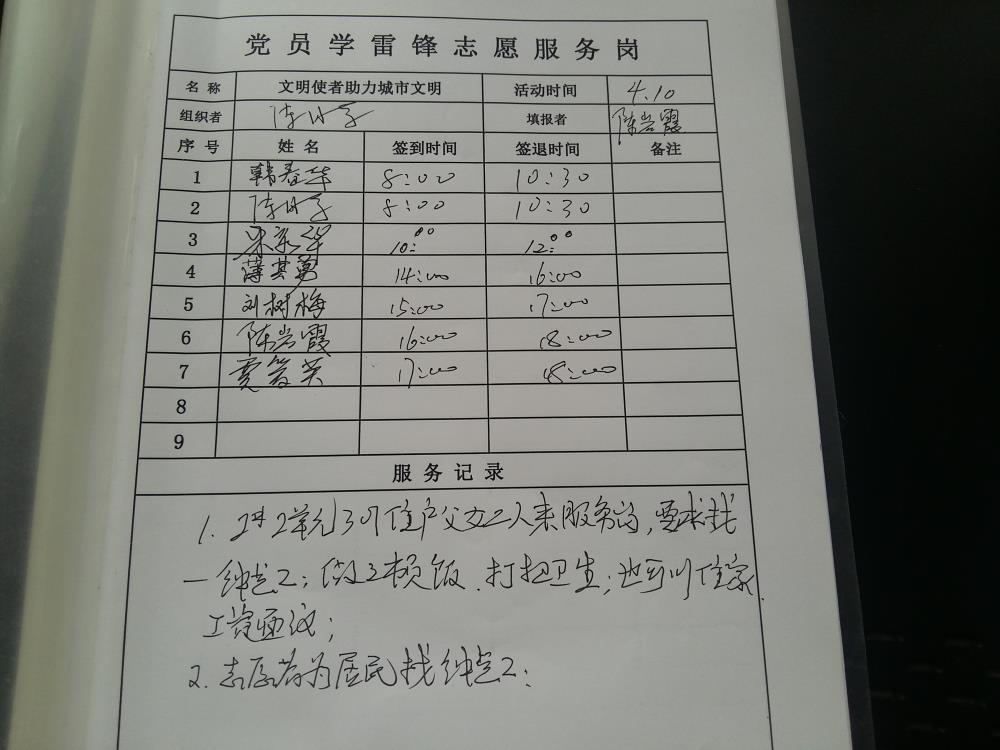 党员学雷锋志愿服务岗
名称 文明使者助力城市文明 活动时间 4.10
组织者 填报者 陈岩霞
序号 姓名 签到时间 签退时间 备注
1 韩春华 8:00 10:30
2 8:00 10:30
3 10:00 12:00
4 薄其勇 14:00 16:00
5 刘树梅 15:00 17:00
6 陈岩霞 16:00 18:00
7 17:00 18:00
8
9
服务记录
1. 2#2单元301住户父女二人来服务岗,要求找
一钟点工;做三顿饭、打扫卫生;也可以住家、
工资面议;
2. 志愿者为居民找钟点工;